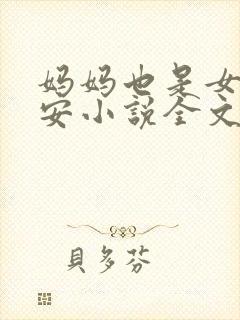 妈妈也是女
安小说全文
貝多芬